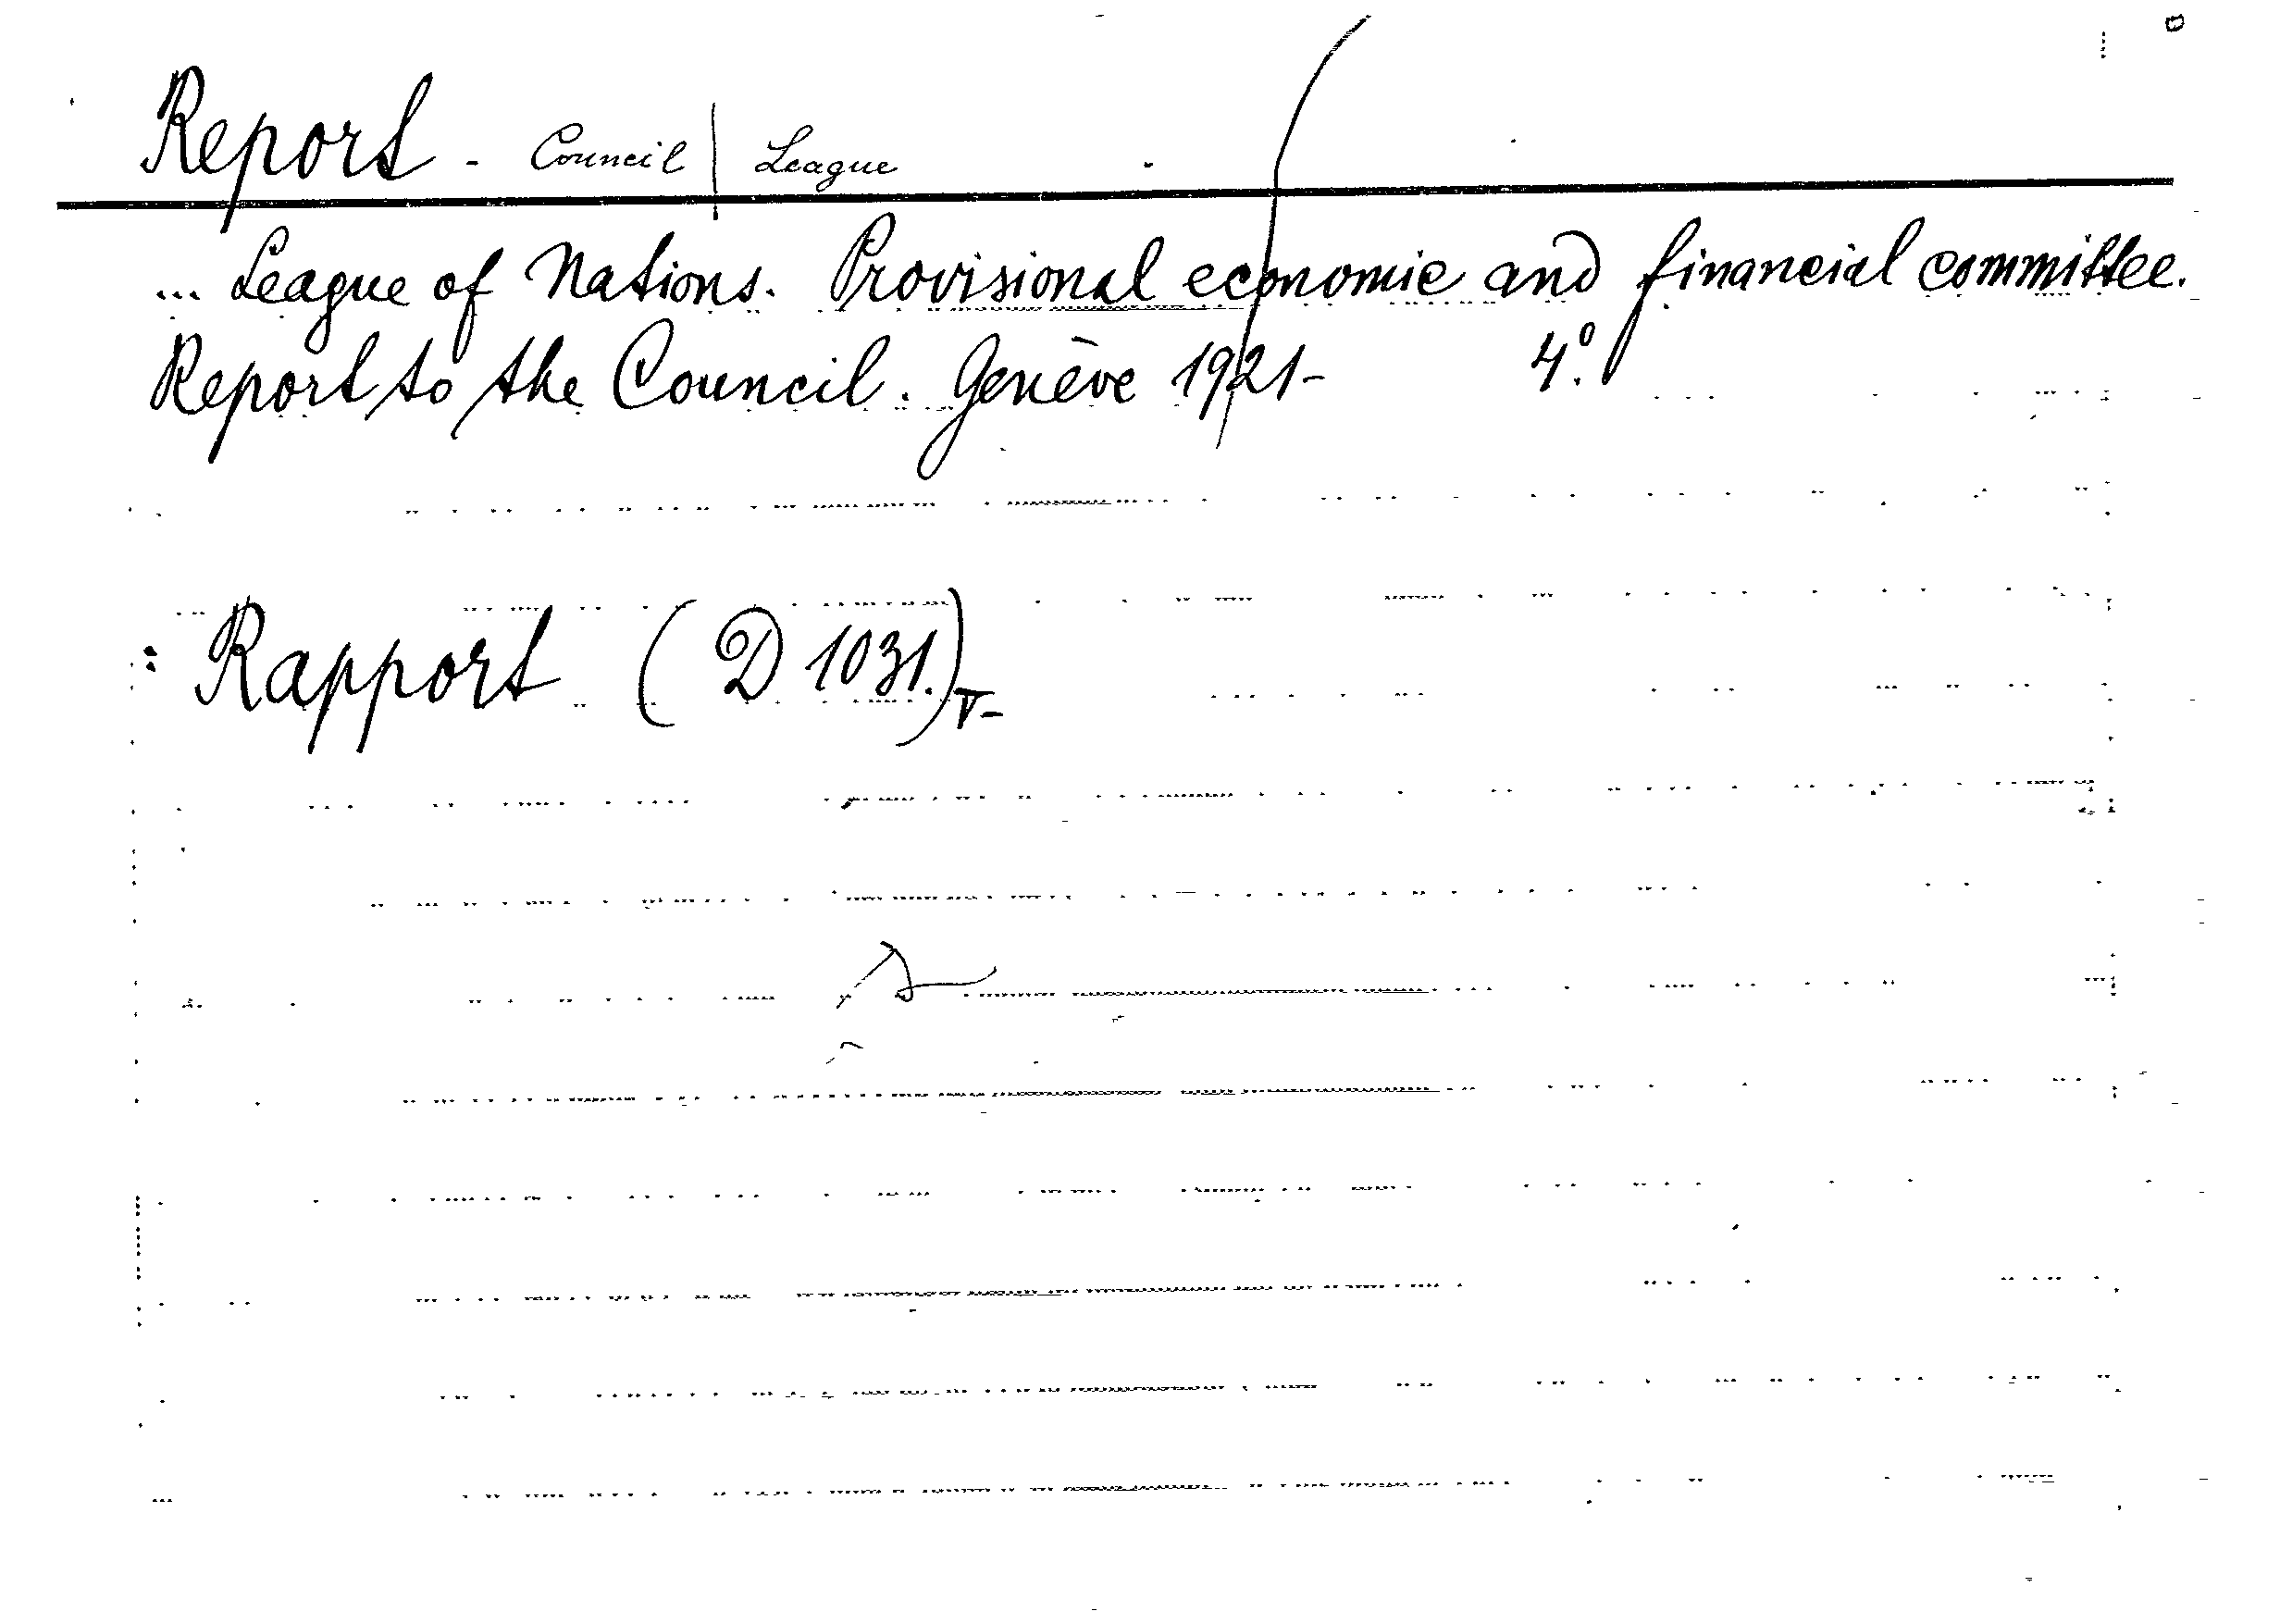 Report - Council | League
... League of Nations. Provisional economic and financial committee.
Report to the Council. Genève 1921- 4º.
: Rapport (D 1031.)